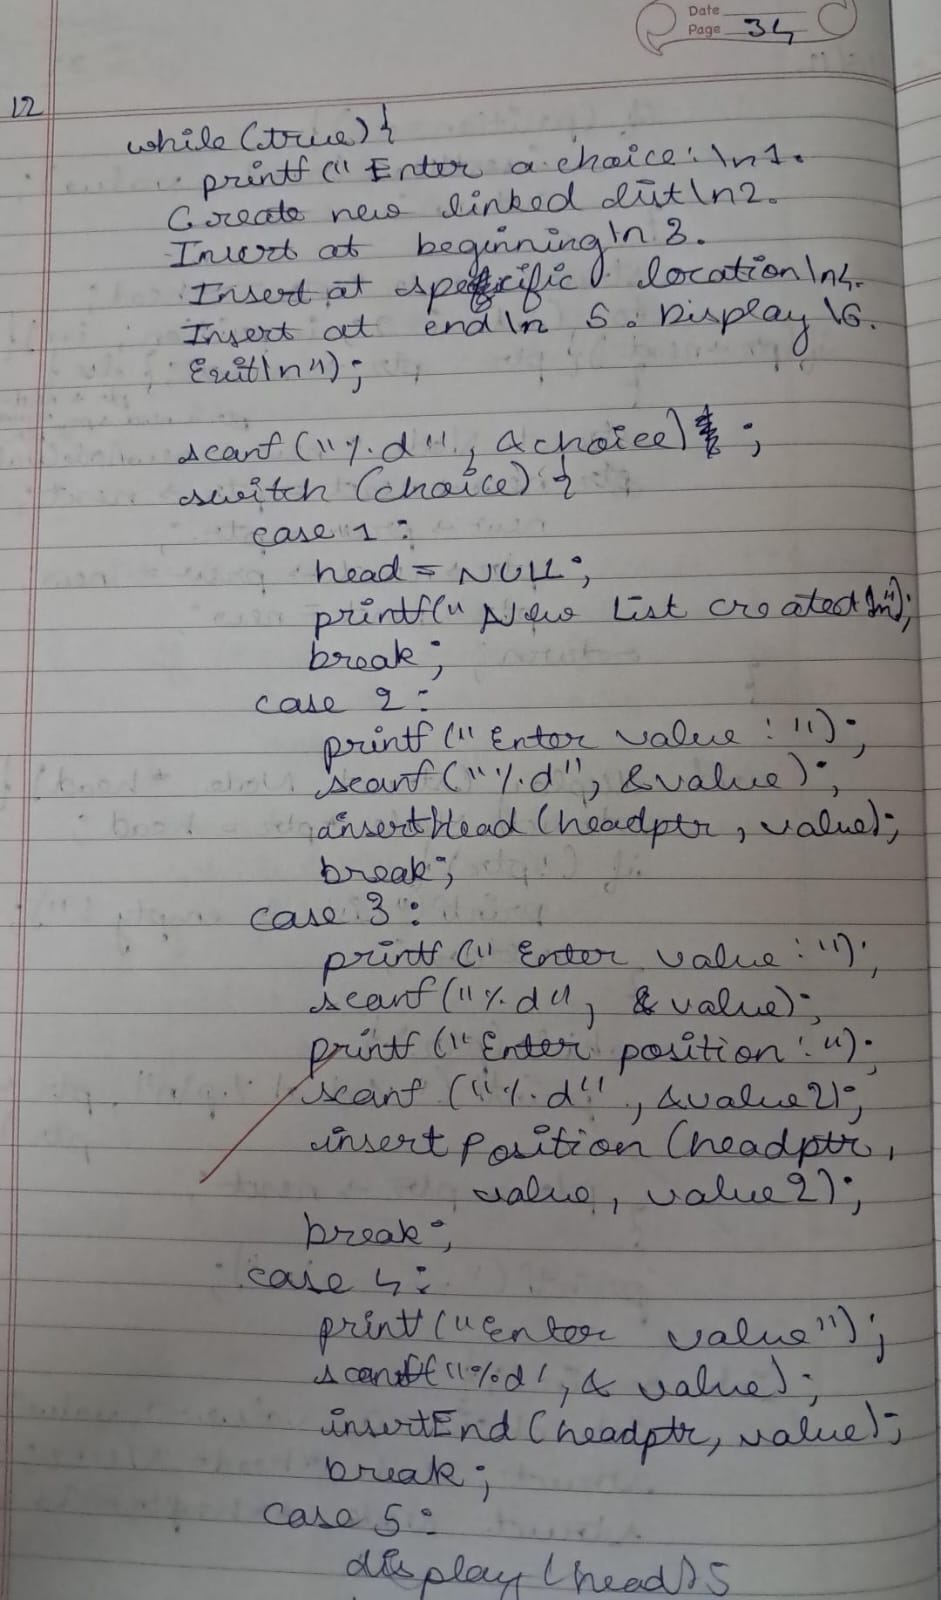 Date
Page 34
12
while (true) {
printf (" Enter a choice: \n1.
Create new linked list \n2.
Insert at beginning \n 3.
Insert at specific location \n4.
Insert at end \n 5. Display \6.
Exit \n");
scanf ("%d", &choice) ;
switch (choice) {
case 1 :
head = NULL;
printf(" New List created \n");
break;
case 2:
printf (" Enter value : ");
scanf ("%d", &value);
insertHead (headptr, value);
break;
case 3 :
printf (" Enter value : ");
scanf ("%d", & value);
printf (" Enter position : ");
scanf ("%d", &value2);
insert Position (headptr,
value, value 2);
break;
case 4 :
printf (" Enter value");
scanf "%d', & value);
insertEnd (headptr, value);
break;
case 5 :
display (head);